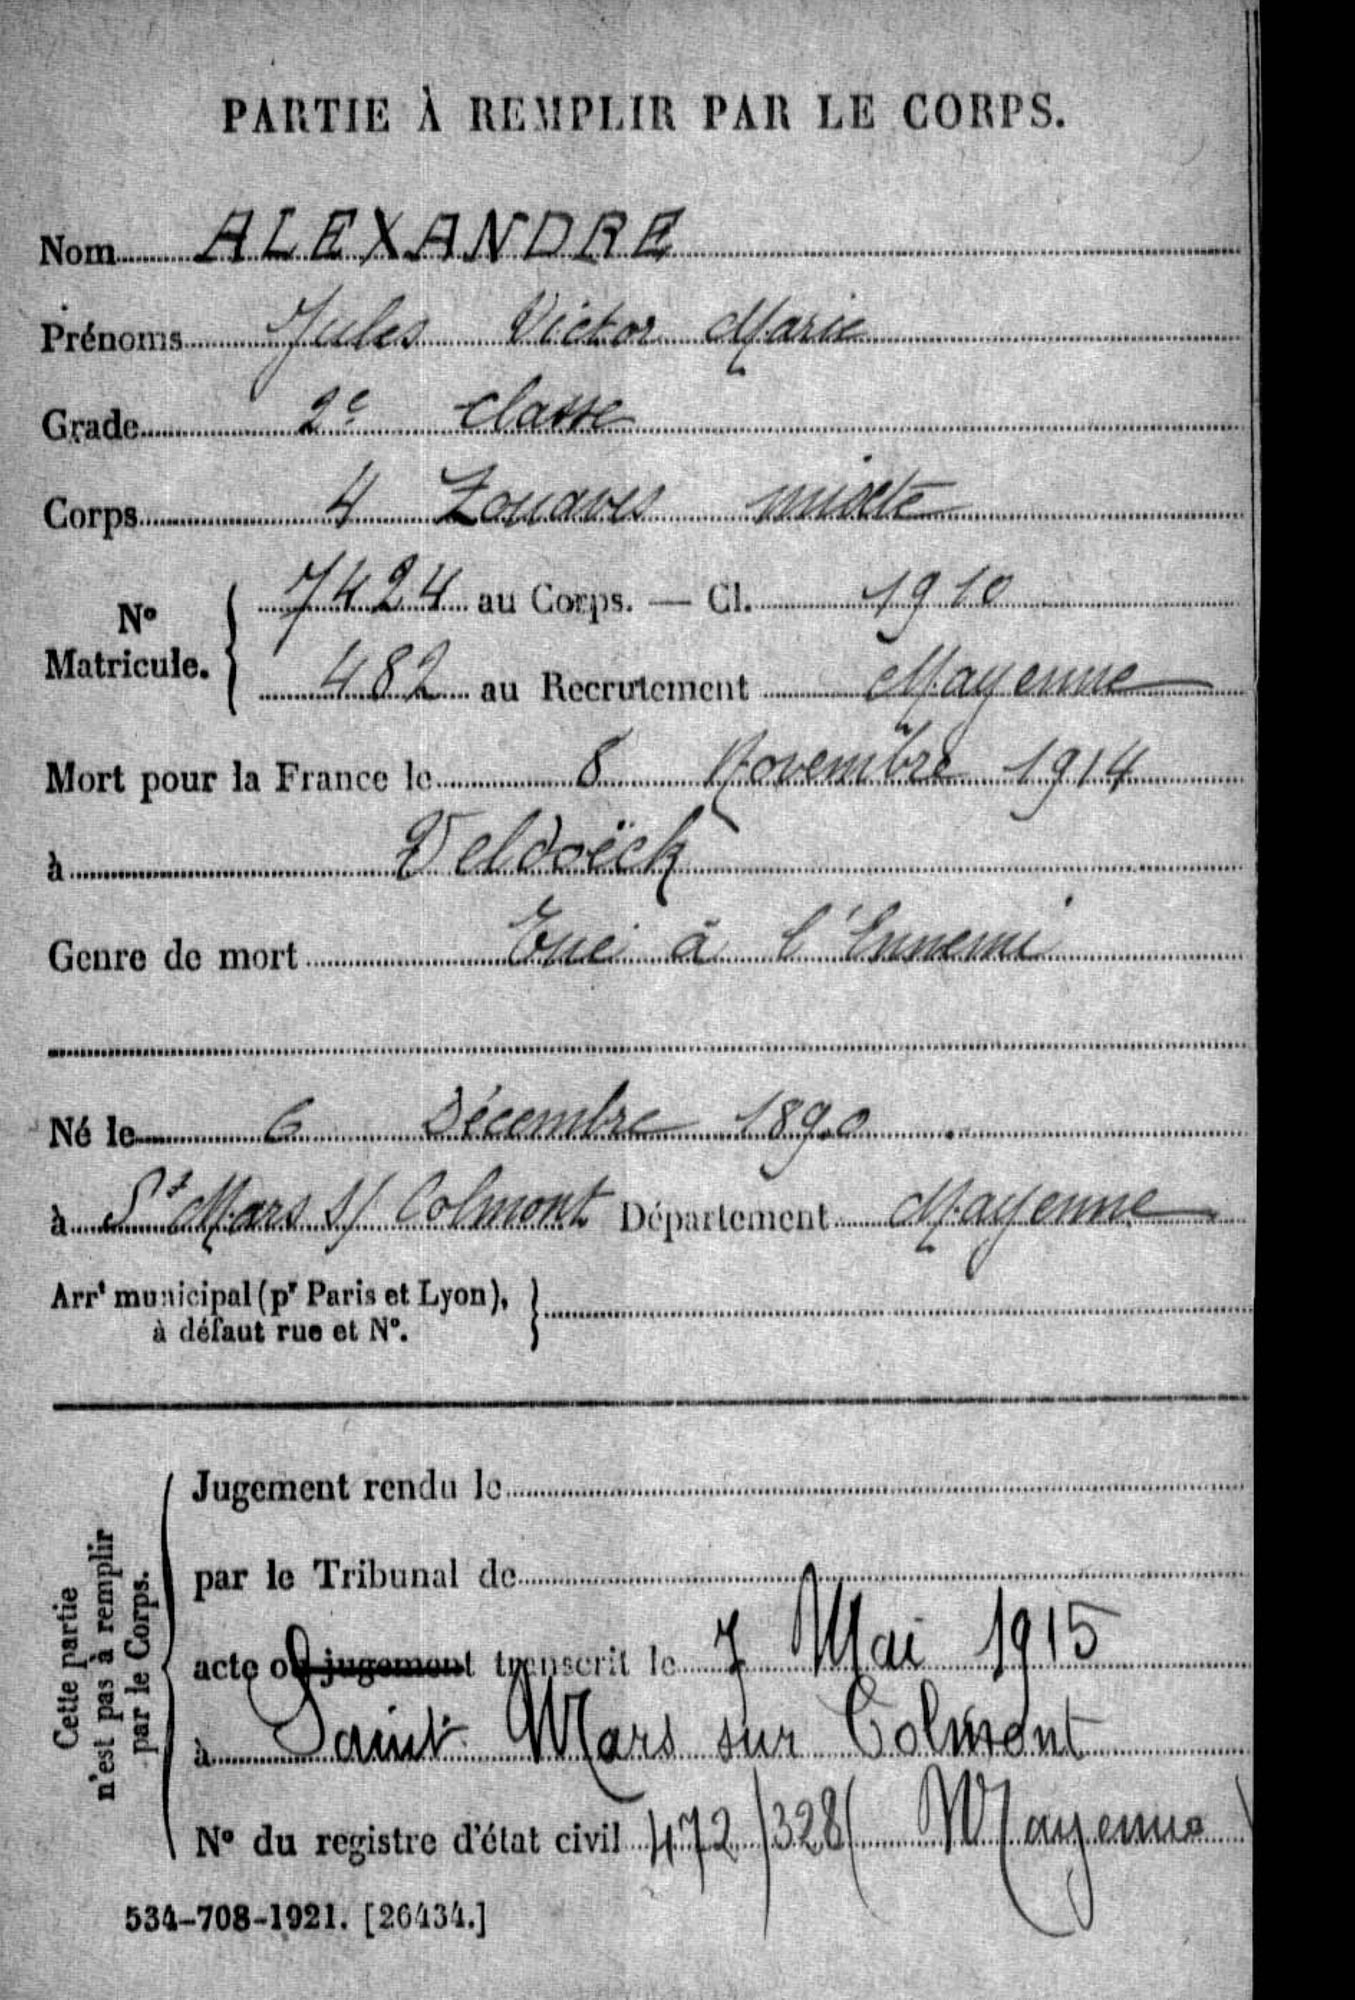 PARTIE À REMPLIR PAR LE CORPS.
Nom ALEXANDRE
Prénoms Jules Victor Marie
Grade 2e classe
Corps 4 Zouaves mixte
N° Matricule. { 7424 au Corps. — Cl. 1910
482 au Recrutement Mayenne
Mort pour la France le 8 Novembre 1914
à Veldoëck
Genre de mort Tué à l'Ennemi
Né le 6 Décembre 1890
à St Mars s/ Colmont Département Mayenne
Arrt municipal (pr Paris et Lyon), }
à défaut rue et N°.
Cette partie
n'est pas à remplir
par le Corps.
Jugement rendu le
par le Tribunal de
acte ou jugement transcrit le 7 Mai 1915
à Saint Mars sur Colmont
N° du registre d'état civil 472/328 (Mayenne)
534-708-1921. [26434.]